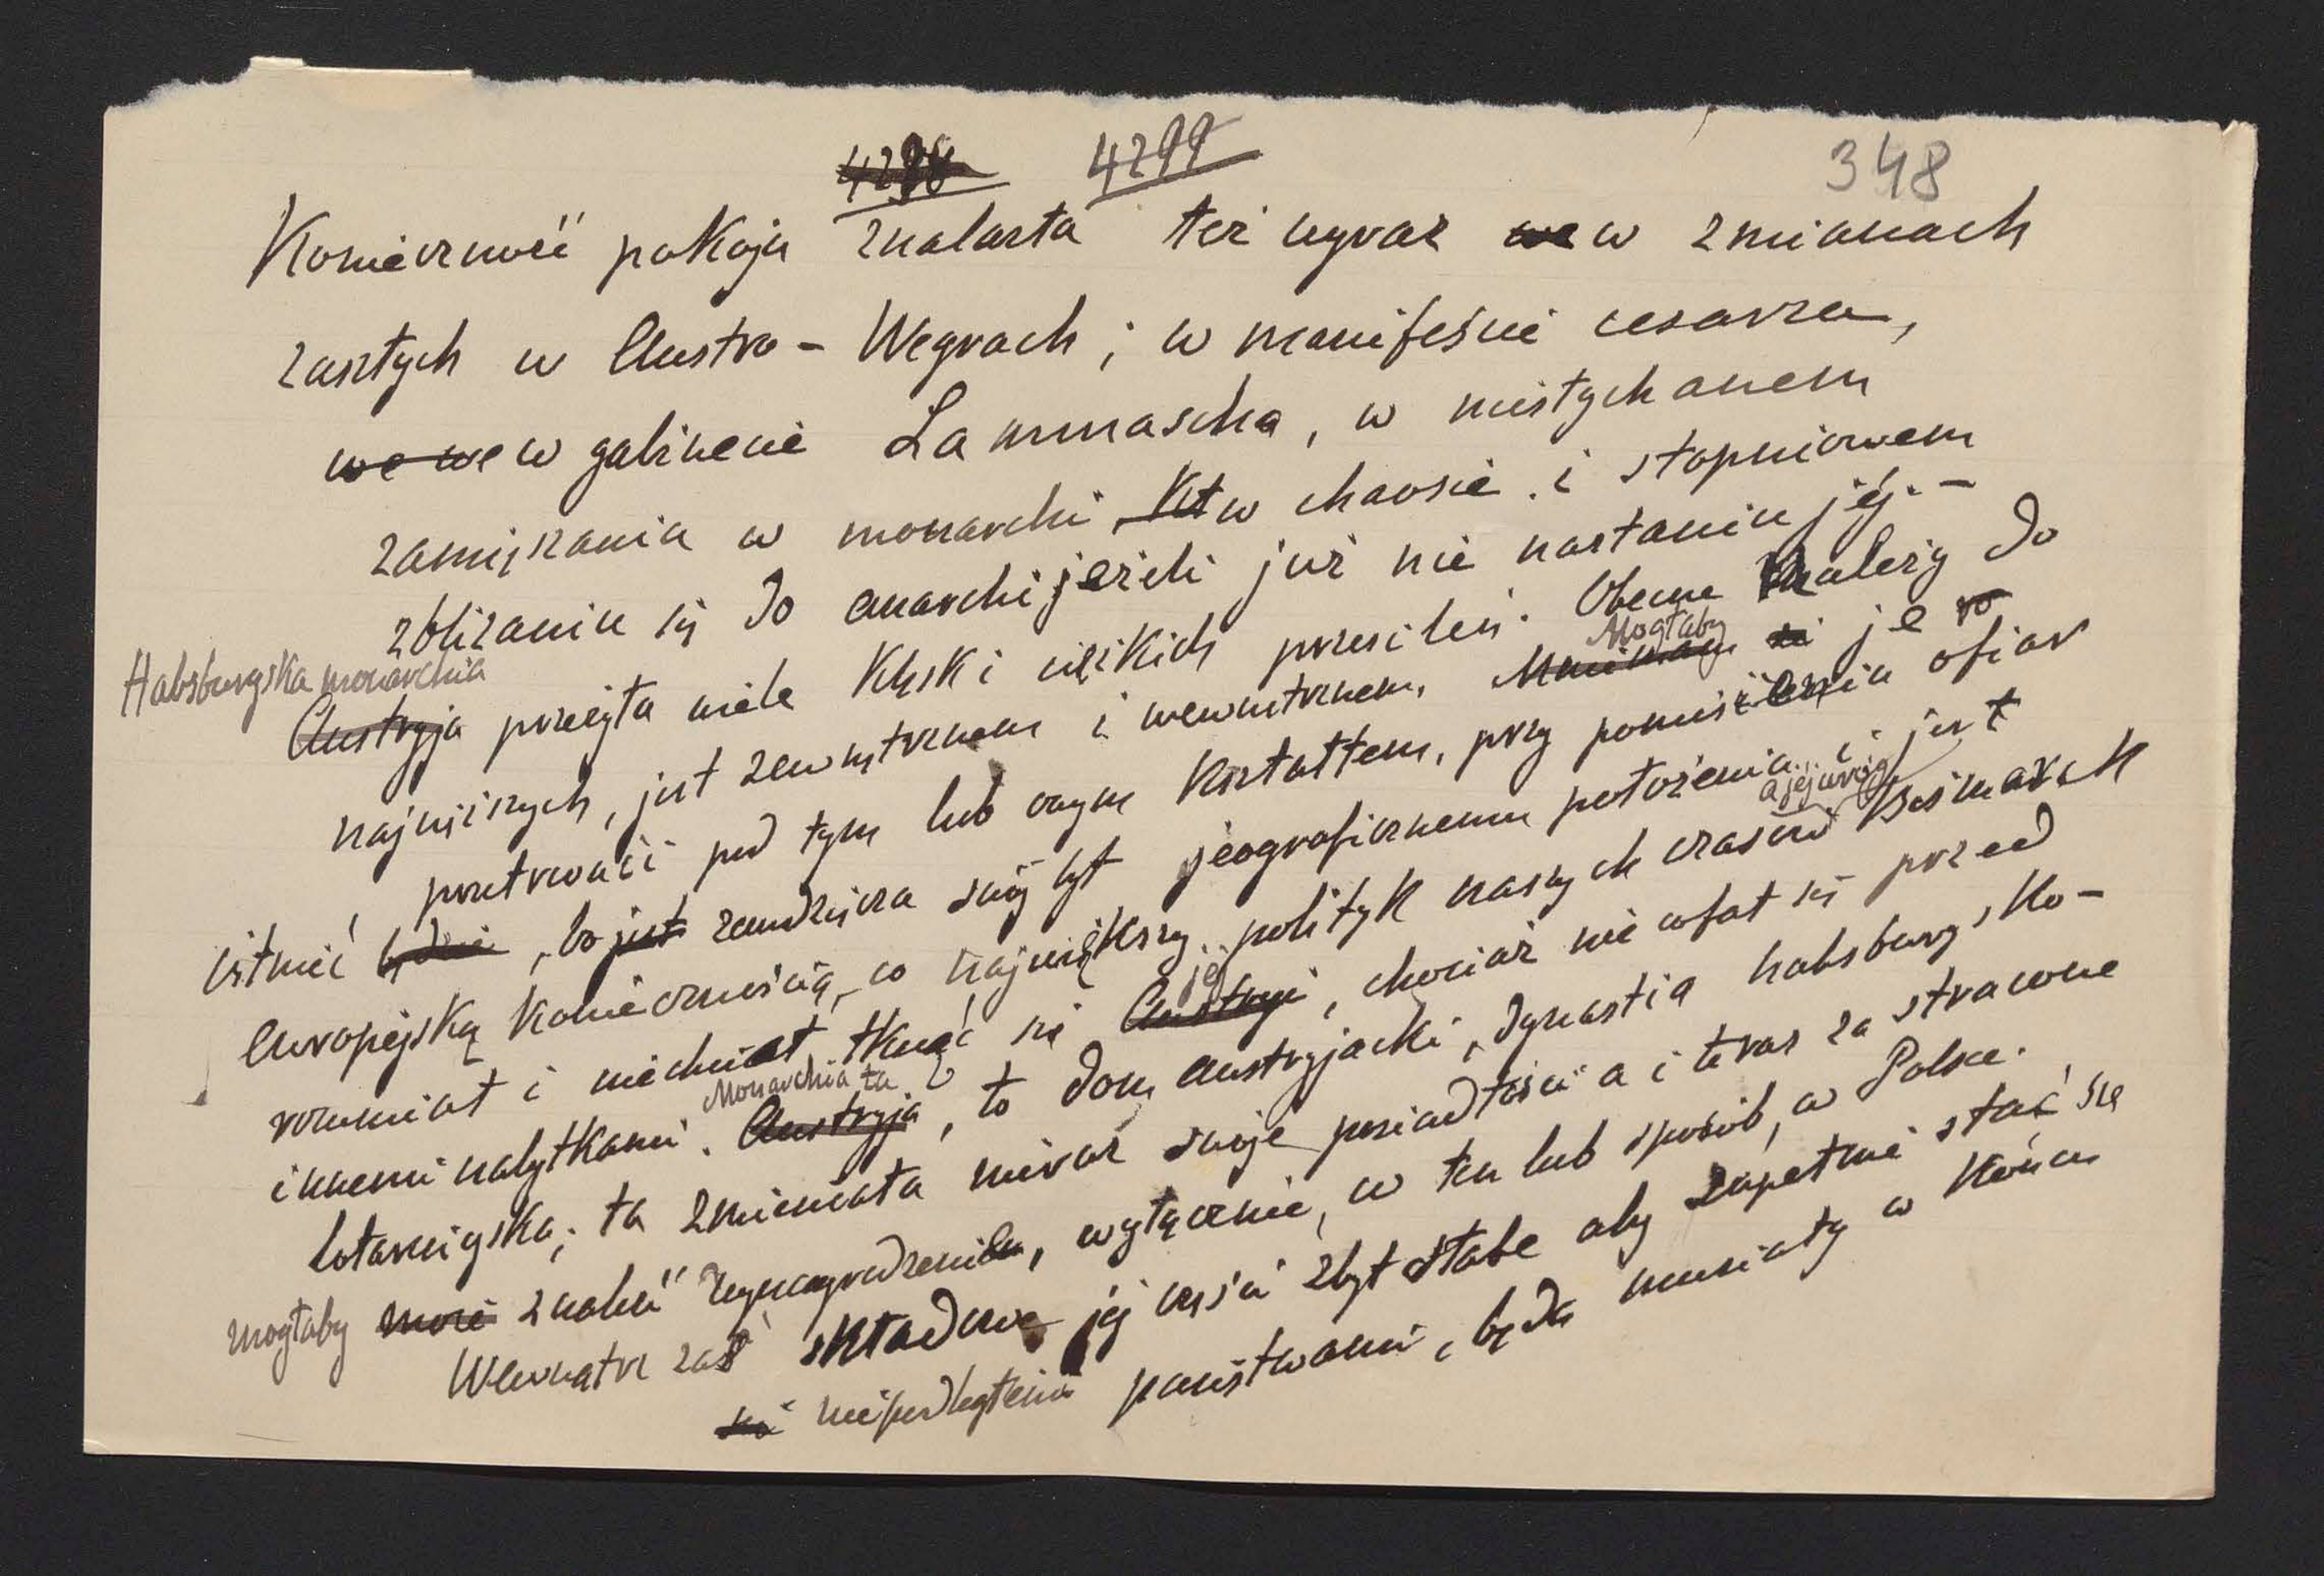 4298 4299 348
Konieczność pokoju znalazła też wyraz we w zmianach
zaszłych w Austro-Węgrach; w manifeście cesarza,
we we w gabinecie Lammascha, w niesłychanem
zamięszaniu w monarchi, w chaosie i stopniowem
zbliżaniu się do anarchi jeżeli już nie nastaniu jéj. -
Habsburgska monarchia
Austryja przeżyła wiele klęsk i ciężkich przesileń. Obecne należy do
najcięższych, jest zewnętrznem i wewnętrznem. Mogłaby je
przetrwać i pod tym lub owym kształtem, przy poniesieniu ofiar
istnieć będzie, bo jest zawdzięcza swój byt jeograficznemu położeniu i jest
europejską koniecznością, co największy polityk naszych czasów Bismarck
a jej wróg
rozumiał i niechciał tknąć się Austryi, chociaż nie cofał się przed
jej
innemi nabytkami. Austryja, to dom austryjacki, dynastia habsburgsko-
Monarchia ta
lotaryngska; ta zmieniała nieraz swoje posiadłości a i teraz za stracone
mogłaby może znaleść wynagrodzenie, wyłącznie, w ten lub sposób, w Polsce.
Wewnątrz zaś składowe jej części zbyt słabe aby zupełnie stać się
niepodległemi państwami, będą musiały w końcu